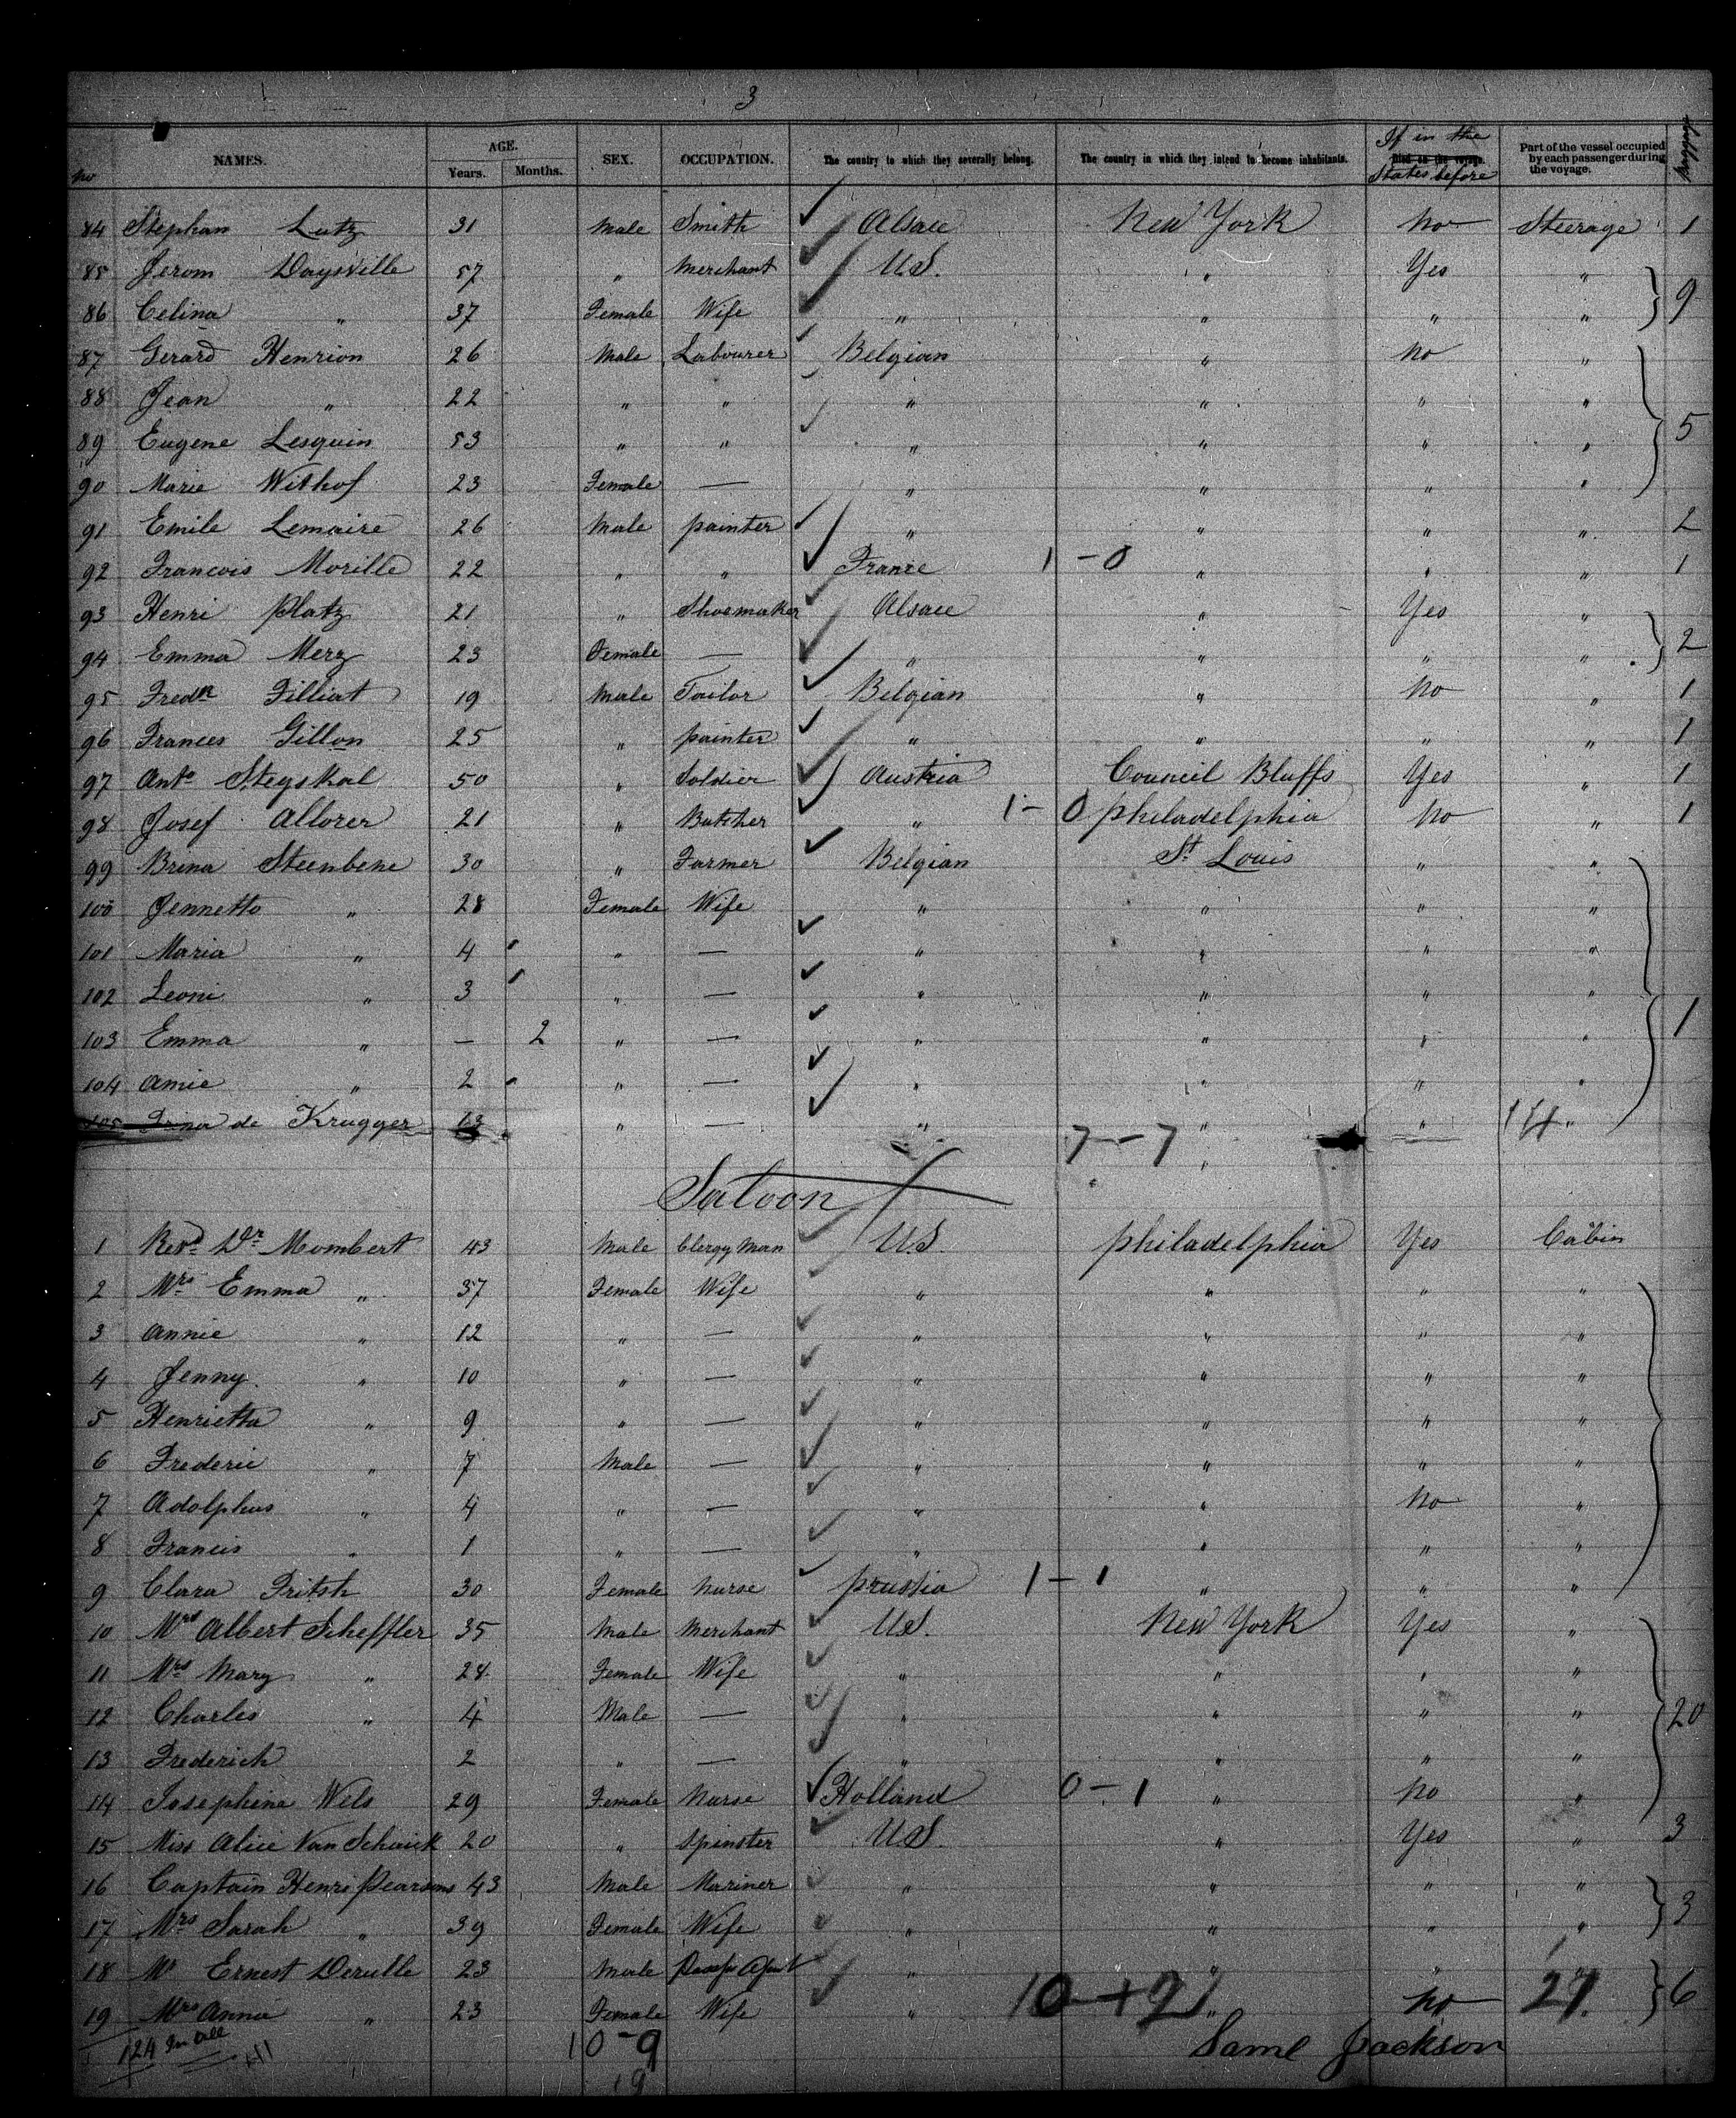 3
No NAMES. AGE. Years. Months. SEX. OCCUPATION. The country to which they severally belong. The country in which they intend to become inhabitants. Died on the voyage. If in the States before Part of the vessel occupied by each passenger during the voyage. Luggage
84 Stephan Lutz 31 Male Smith Alsace New York No Steerage 1
85 Jerom Daysville 57 " Merchant U.S. " Yes "
86 Celina " 37 Female Wife " " " " 9
87 Gerard Henrion 26 Male Labourer Belgian " No "
88 Jean " 22 " " " " " "
89 Eugene Lesquin 53 " " " " " " 5
90 Marie Withof 23 Female — " " " "
91 Emile Lemaire 26 Male painter " " " " 2
92 Francois Morille 22 " " France 1-0 " " " 1
93 Henri Platz 21 " Shoemaker Alsace " Yes "
94 Emma Merz 23 Female — " " " " 2
95 Fredk Filliat 19 Male Tailor Belgian " No " 1
96 Frances Gillon 25 " painter " " " " 1
97 Anto Steyskal 50 " Soldier Austria Council Bluffs Yes " 1
98 Josef Allorer 21 " Butcher " 1-0 philadelphia No " 1
99 Brina Steenbene 30 " Farmer Belgian St Louis " "
100 Jennetto " 28 Female Wife " " " "
101 Maria " 4 " — " " " "
102 Leoni " 3 " — " " " "
103 Emma " — 2 " — " " " " 1
104 Amie " 2 " — " " " "
105 de Krugger 13 " — " 7-7 " " 14 "
Saloon
1 Revd Dr Mombert 43 Male Clergyman U.S. philadelphia Yes Cabin
2 Mrs Emma " 37 Female Wife " " " "
3 Annie " 12 " — " " " "
4 Jenny " 10 " — " " " "
5 Henrietta " 9 " — " " " "
6 Frederic " 7 Male — " " " "
7 Adolphus " 4 " — " " No "
8 Francis " 1 " — " " " "
9 Clara Fritsh 30 Female Nurse prussia 1-1 " " "
10 Mr Albert Scheffler 35 Male Merchant U.S. New York Yes "
11 Mrs Mary " 28 Female Wife " " " "
12 Charles " 4 Male — " " " " 20
13 Frederich 2 " — " " " "
14 Josephine Wels 29 Female Nurse Holland 0-1 " No "
15 Miss Alice Van Schaick 20 " Spinster U.S. " Yes " 3
16 Captain Henri Pearsons 43 Male Mariner " " " "
17 Mrs Sarah " 39 Female Wife " " " " 3
18 Mr Ernest Derulle 23 Male " " " "
19 Mrs Anna " 23 Female Wife " 10+9 " No 27 6
124 In all 10-9 Saml Jackson
19